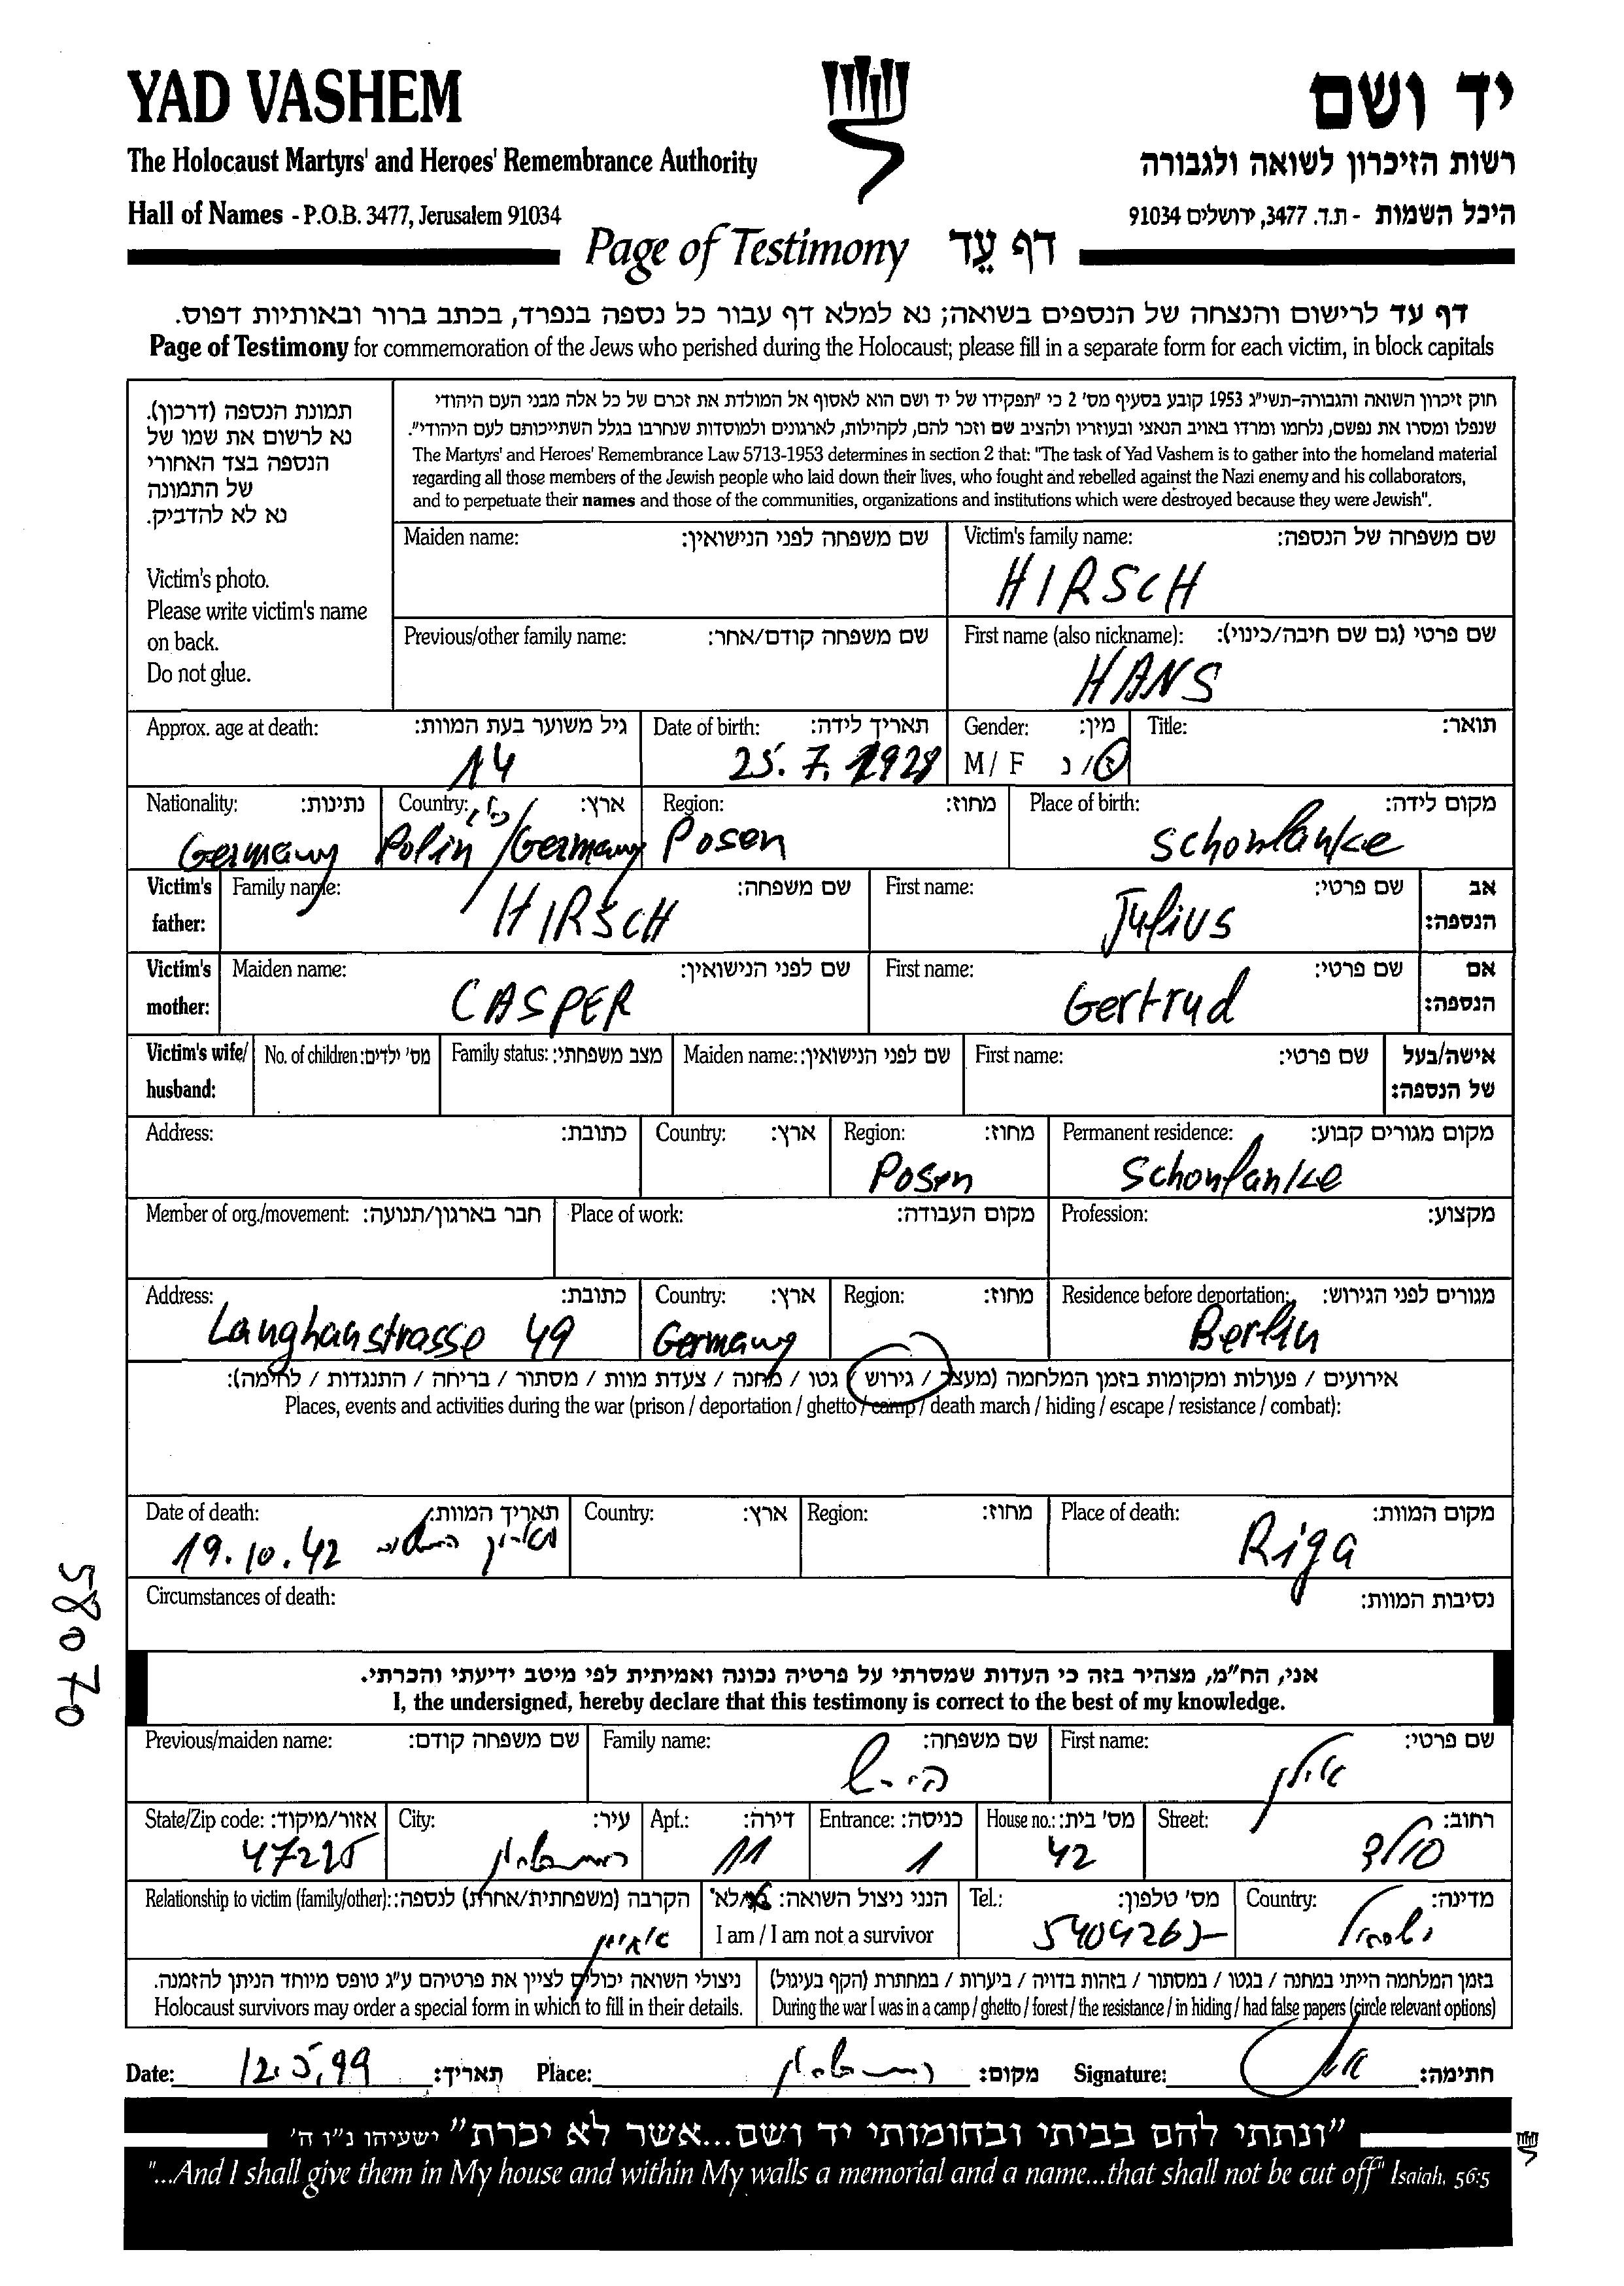 YAD VASHEM
יד ושם
The Holocaust Martyrs' and Heroes' Remembrance Authority
רשות הזיכרון לשואה ולגבורה
Hall of Names - P.O.B. 3477, Jerusalem 91034
היכל השמות - ת.ד. 3477, ירושלים 91034
Page of Testimony דף עֵד
דף עד לרישום והנצחה של הנספים בשואה; נא למלא דף עבור כל נספה בנפרד, בכתב ברור ובאותיות דפוס.
Page of Testimony for commemoration of the Jews who perished during the Holocaust; please fill in a separate form for each victim, in block capitals
תמונת הנספה (דרכון).
נא לרשום את שמו של
הנספה בצד האחורי
של התמונה
נא לא להדביק.
Victim's photo.
Please write victim's name
on back.
Do not glue.
חוק זיכרון השואה והגבורה-תשי"ג 1953 קובע בסעיף מס' 2 כי "תפקידו של יד ושם הוא לאסוף אל המולדת את זכרם של כל אלה מבני העם היהודי
שנפלו ומסרו את נפשם, נלחמו ומרדו באויב הנאצי ובעוזריו ולהציב שם וזכר להם, לקהילות, לארגונים ולמוסדות שנחרבו בגלל השתייכותם לעם היהודי".
The Martyrs' and Heroes' Remembrance Law 5713-1953 determines in section 2 that: "The task of Yad Vashem is to gather into the homeland material
regarding all those members of the Jewish people who laid down their lives, who fought and rebelled against the Nazi enemy and his collaborators,
and to perpetuate their names and those of the communities, organizations and institutions which were destroyed because they were Jewish".
Maiden name: שם משפחה לפני הנישואין:
Victim's family name: שם משפחה של הנספה:
HIRSCH
Previous/other family name: שם משפחה קודם/אחר:
First name (also nickname): שם פרטי (גם שם חיבה/כינוי):
HANS
Approx. age at death: גיל משוער בעת המוות:
14
Date of birth: תאריך לידה:
25. 7. 1928
Gender: מין:
M / F ז/נ
Title: תואר:
Nationality: נתינות:
Germany
Country: ארץ:
Polin/Germany
Region: מחוז:
Posen
Place of birth: מקום לידה:
Schonlanke
Victim's father: Family name: שם משפחה:
HIRSCH
First name: שם פרטי:
Julius
אב הנספה:
Victim's mother: Maiden name: שם לפני הנישואין:
CASPER
First name: שם פרטי:
Gertrud
אם הנספה:
Victim's wife/ husband:
No. of children: מס' ילדים:
Family status: מצב משפחתי:
Maiden name: שם לפני הנישואין:
First name: שם פרטי:
אישה/בעל של הנספה:
Address: כתובת:
Country: ארץ:
Region: מחוז:
Posen
Permanent residence: מקום מגורים קבוע:
Schonlanke
Member of org./movement: חבר בארגון/תנועה:
Place of work: מקום העבודה:
Profession: מקצוע:
Address: כתובת:
Langhanstrasse 49
Country: ארץ:
Germany
Region: מחוז:
Residence before deportation: מגורים לפני הגירוש:
Berlin
אירועים / פעולות ומקומות בזמן המלחמה (מעצר / גירוש / גטו / מחנה / צעדת מוות / מסתור / בריחה / התנגדות / לחימה):
Places, events and activities during the war (prison / deportation / ghetto / camp / death march / hiding / escape / resistance / combat):
Date of death: תאריך המוות:
19.10.42
Country: ארץ:
Region: מחוז:
Place of death: מקום המוות:
Riga
Circumstances of death: נסיבות המוות:
58070
אני, הח"מ, מצהיר בזה כי העדות שמסרתי על פרטיה נכונה ואמיתית לפי מיטב ידיעתי והכרתי.
I, the undersigned, hereby declare that this testimony is correct to the best of my knowledge.
Previous/maiden name: שם משפחה קודם:
Family name: שם משפחה:
הירש
First name: שם פרטי:
אילן
State/Zip code: אזור/מיקוד:
47225
City: עיר:
רמת השרון
Apt.: דירה:
11
Entrance: כניסה:
1
House no.: מס' בית:
42
Street: רחוב:
Relationship to victim (family/other): הקרבה (משפחתית/אחרת) לנספה:
אחיין
הנני ניצול השואה: כן/לא
I am / I am not a survivor
Tel.: מס' טלפון:
Country: מדינה:
ישראל
ניצולי השואה יכולים לציין את פרטיהם ע"ג טופס מיוחד הניתן להזמנה.
Holocaust survivors may order a special form in which to fill in their details.
בזמן המלחמה הייתי במחנה / בגטו / במסתור / בזהות בדויה / ביערות / במחתרת (הקף בעיגול)
During the war I was in a camp / ghetto / forest / the resistance / in hiding / had false papers (circle relevant options)
Date: 12.5.99 תאריך:
Place: רמת השרון מקום:
Signature: חתימה:
"ונתתי להם בביתי ובחומותי יד ושם...אשר לא יכרת" ישעיהו נ"ו ה'
"...And I shall give them in My house and within My walls a memorial and a name...that shall not be cut off" Isaiah, 56:5